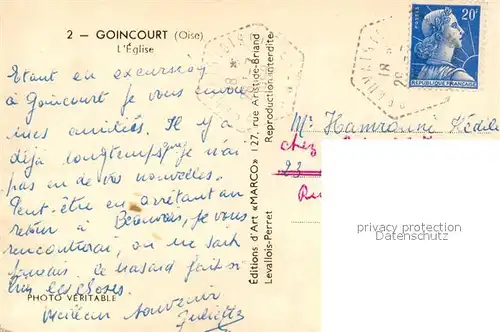 2 - GOINCOURT (Oise)
L'Église
Etant en excursion
à Goincourt je vous envoie
mes amitiés. Il y a
déjà longtemps que je n'ai
pas eu de vos nouvelles.
Peut-être en arrêtant au
retour à Beauvais, je vous
rencontrerai, on ne sait
jamais. Le hasard fait si
bien les choses.
PHOTO VÉRITABLE
Meilleur souvenir
Juliette
Éditions d'Art «MARCO» 127, rue Aristide-Briand
Levallois-Perret Reproduction Interdite
POSTES 20F
REPUBLIQUE FRANÇAISE
18 *
18
Mr Hamrouni Hédile
chez
23
Ru
privacy protection